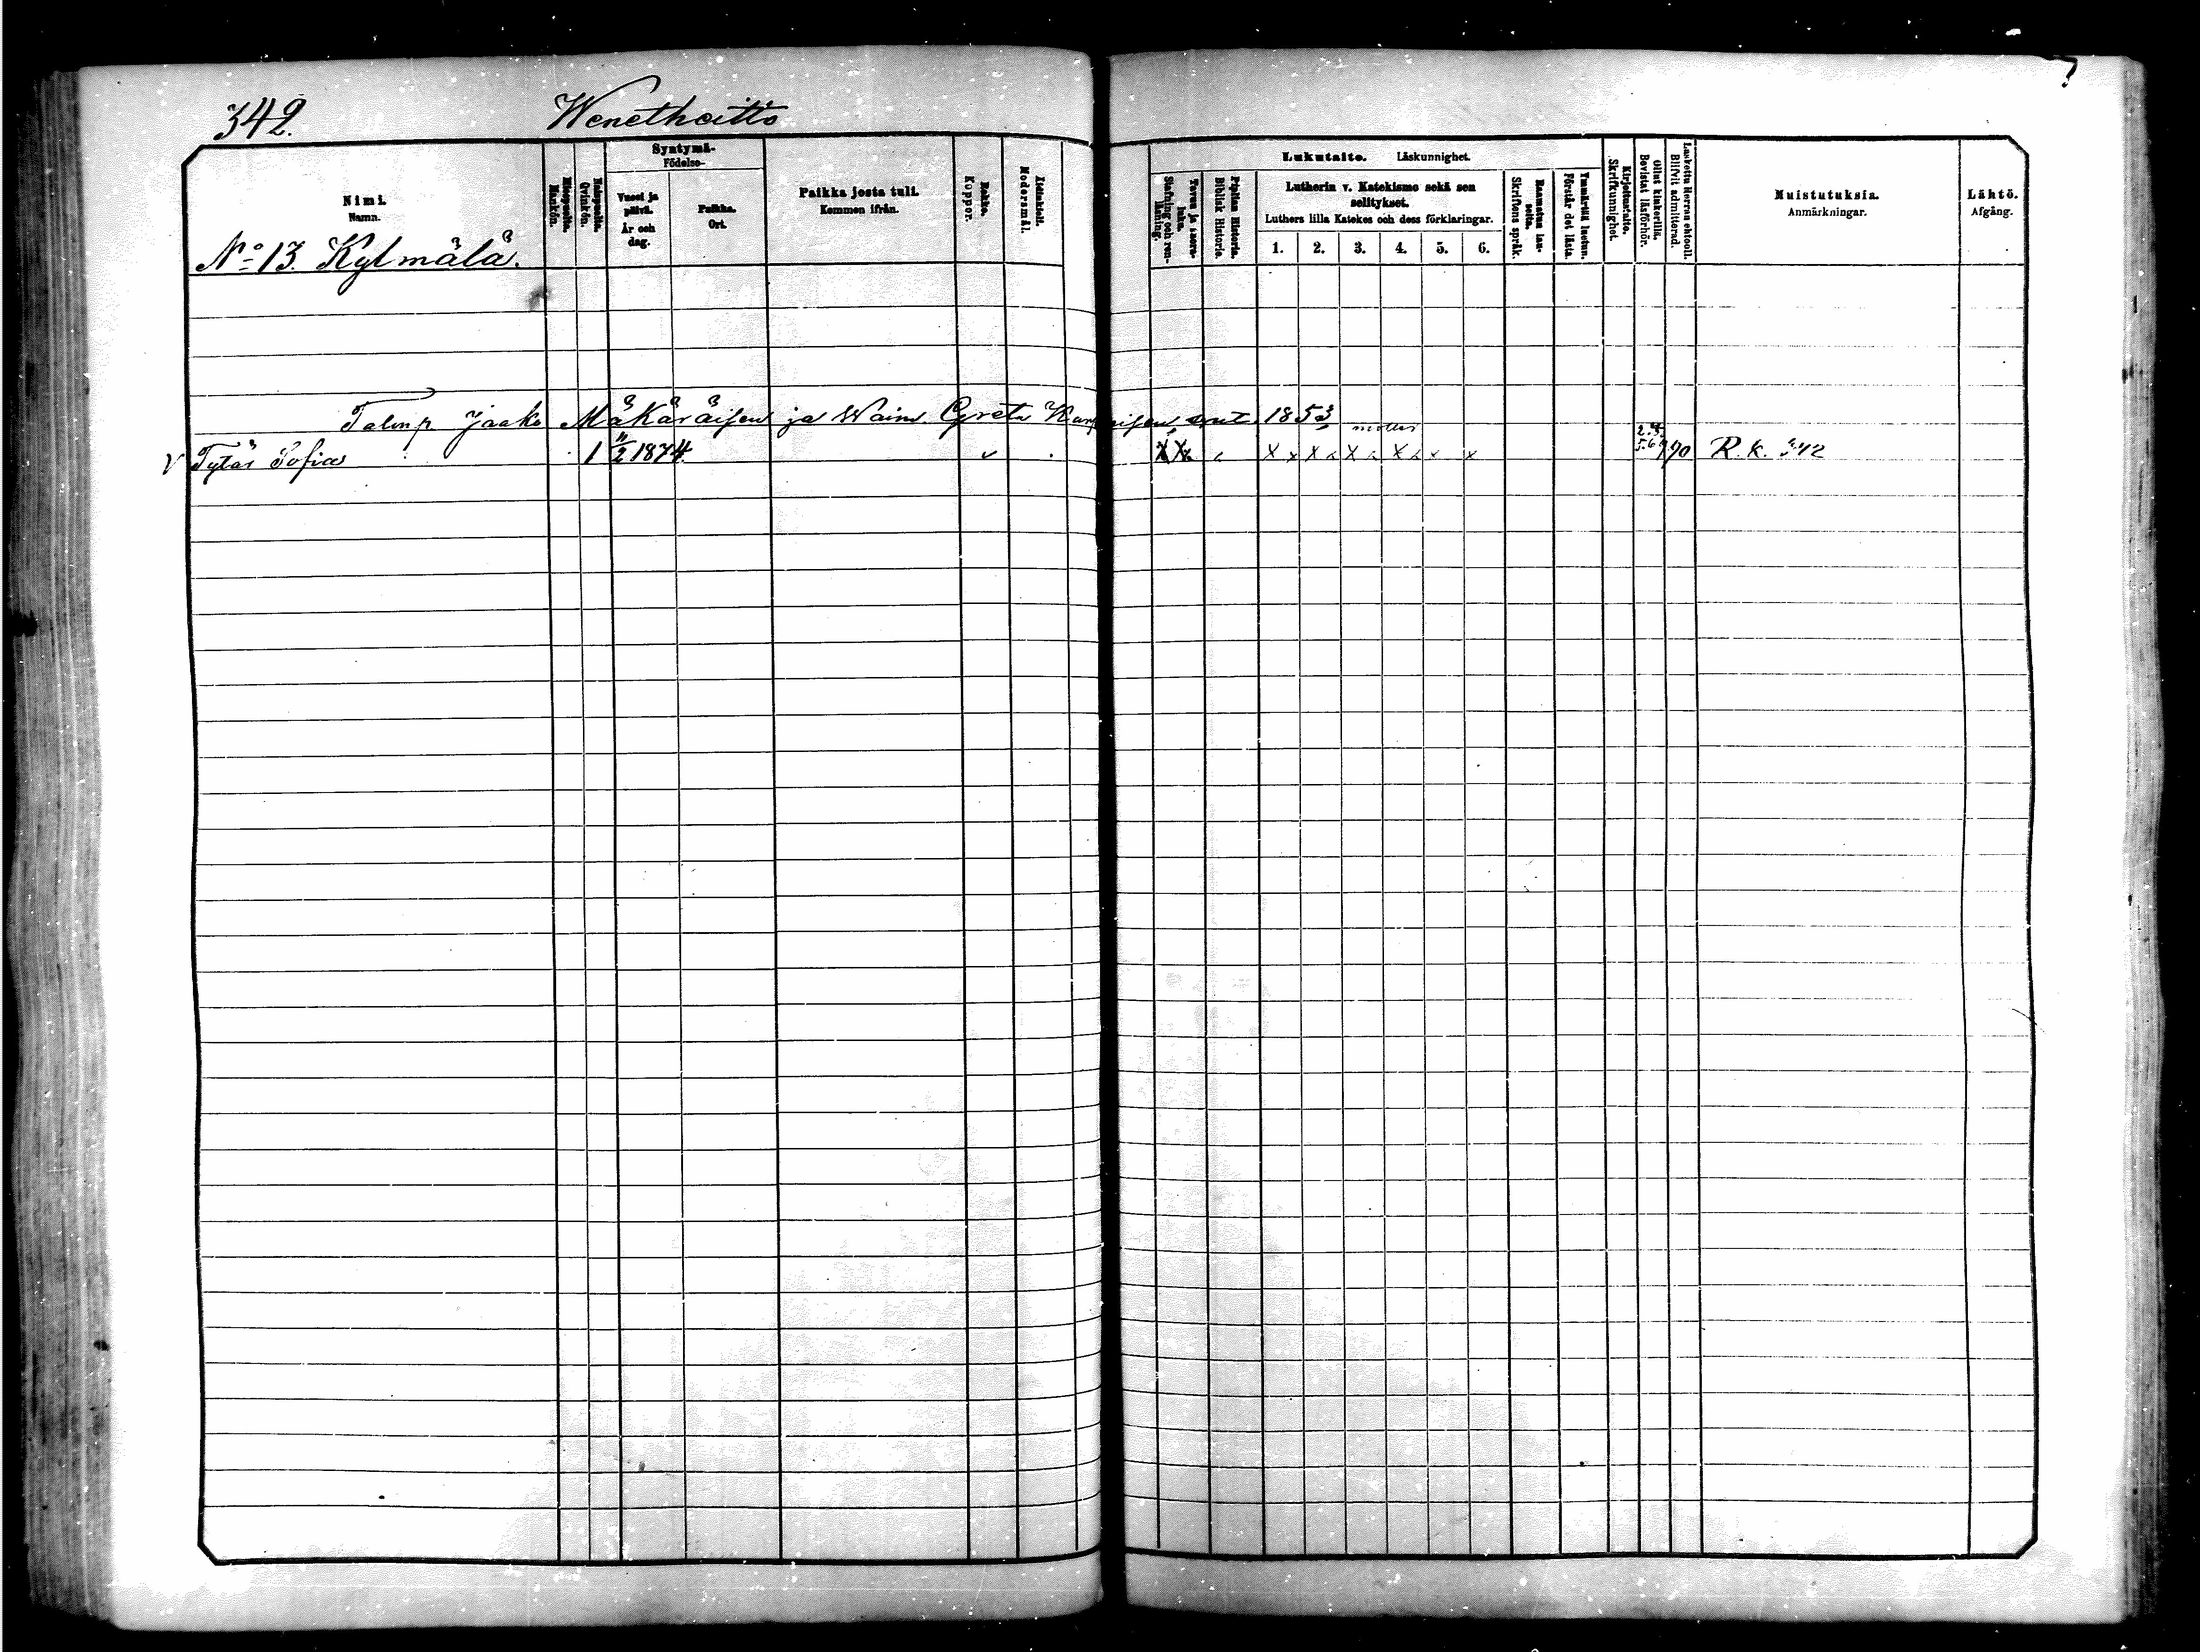 342. Wenetheitto
Nimi.
Namn.
Miespuolia.
Mankön.
Naispuolia.
Qvinkön.
Syntymä-
Födelse-
Vuosi ja päivä.
År och dag.
Paikka.
Ort.
Paikka josta tuli.
Kommen ifrån.
Rokko.
Koppor.
Äidinkieli.
Modersmål.
Lukutaito. Läskunnighet.
Tavuu ja suora-luku.
Stafning och ren-läsning.
Piplian Historia.
Biblisk Historia.
Lutherin v. Katekismo sekä sen selitykset.
Luthers lilla Katekes och dess förklaringar.
1. 2. 3. 4. 5. 6.
Raamatun lau-seita.
Skriftens språk.
Ymmärtää luetun.
Förstår det lästa.
Kirjoitustaito.
Skrifkunnighet.
Ollut kinkerillä.
Bevistat läsförhör.
Laskettu Herran ehtooll.
Blifvit admitterad.
Muistutuksia.
Anmärkningar.
Lähtö.
Afgång.
No 13. Kylmälä.
Talonp Jaako Mäkäräisen ja Waim. Greta 1853
v Tytär Sofia 1 11/2 1874. x x x x x x x x x x 2.4. 5.6 90 R. k. 342